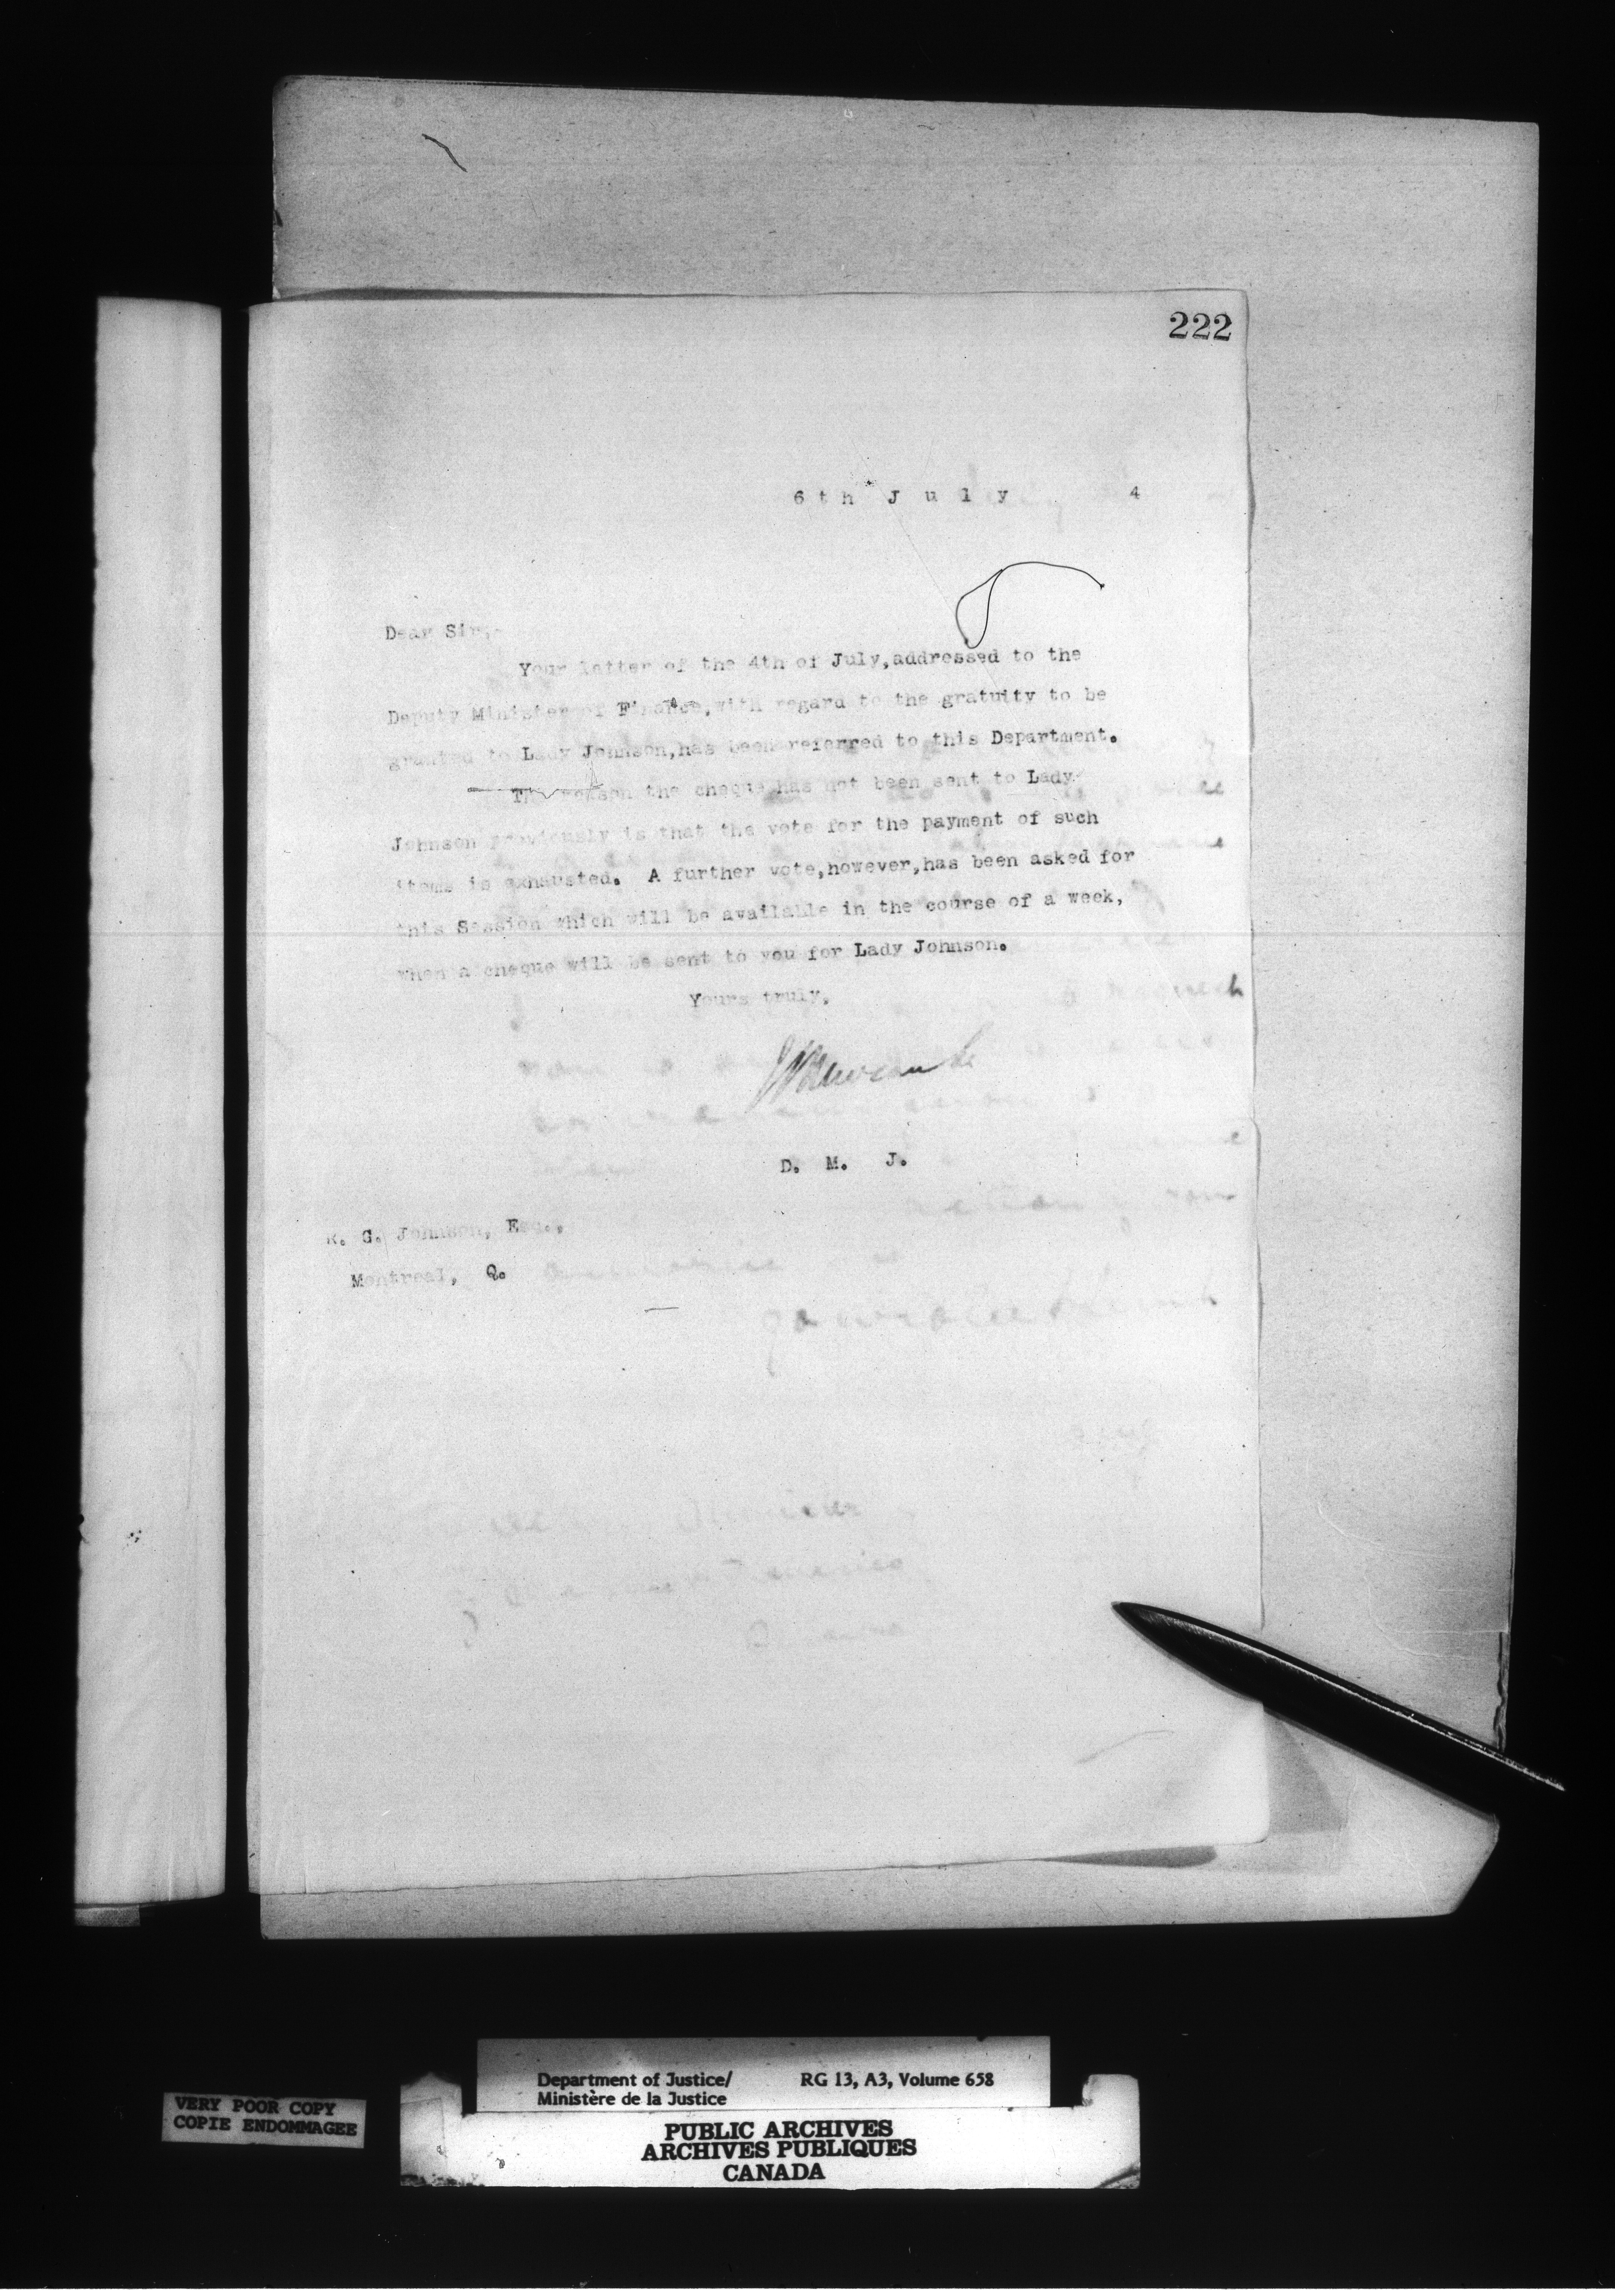 222
6th July 4
Dear Sir,-
Your letter of the 4th of July, addressed to the
Deputy Minister of Finance, with regard to the gratuity to be
granted to Lady Johnson, has been referred to this Department.
The reason the cheque has not been sent to Lady
Johnson previously is that the vote for the payment of such
items is exhausted. A further vote, however, has been asked for
this Session which will be available in the course of a week,
when a cheque will be sent to you for Lady Johnson.
Yours truly,
D. M. J.
R. G. Johnson, Esq.,
Montreal, Q.
Department of Justice/ RG 13, A3, Volume 658
Ministère de la Justice
VERY POOR COPY
COPIE ENDOMMAGEE
PUBLIC ARCHIVES
ARCHIVES PUBLIQUES
CANADA